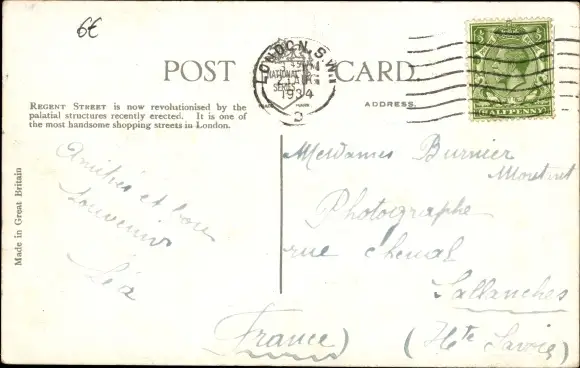 6€
POST CARD.
LONDON. S.W.1
JA
1934
NATIONAL
SERIES
TRADE MARK
2
HALFPENNY
ADDRESS.
REGENT STREET is now revolutionised by the
palatial structures recently erected. It is one of
the most handsome shopping streets in London.
Made in Great Britain
Amitiés et bon
souvenir
Léa
Mesdames Burnier
Photographe
rue chenal
Sallanches
France)
(Hte Savoie)